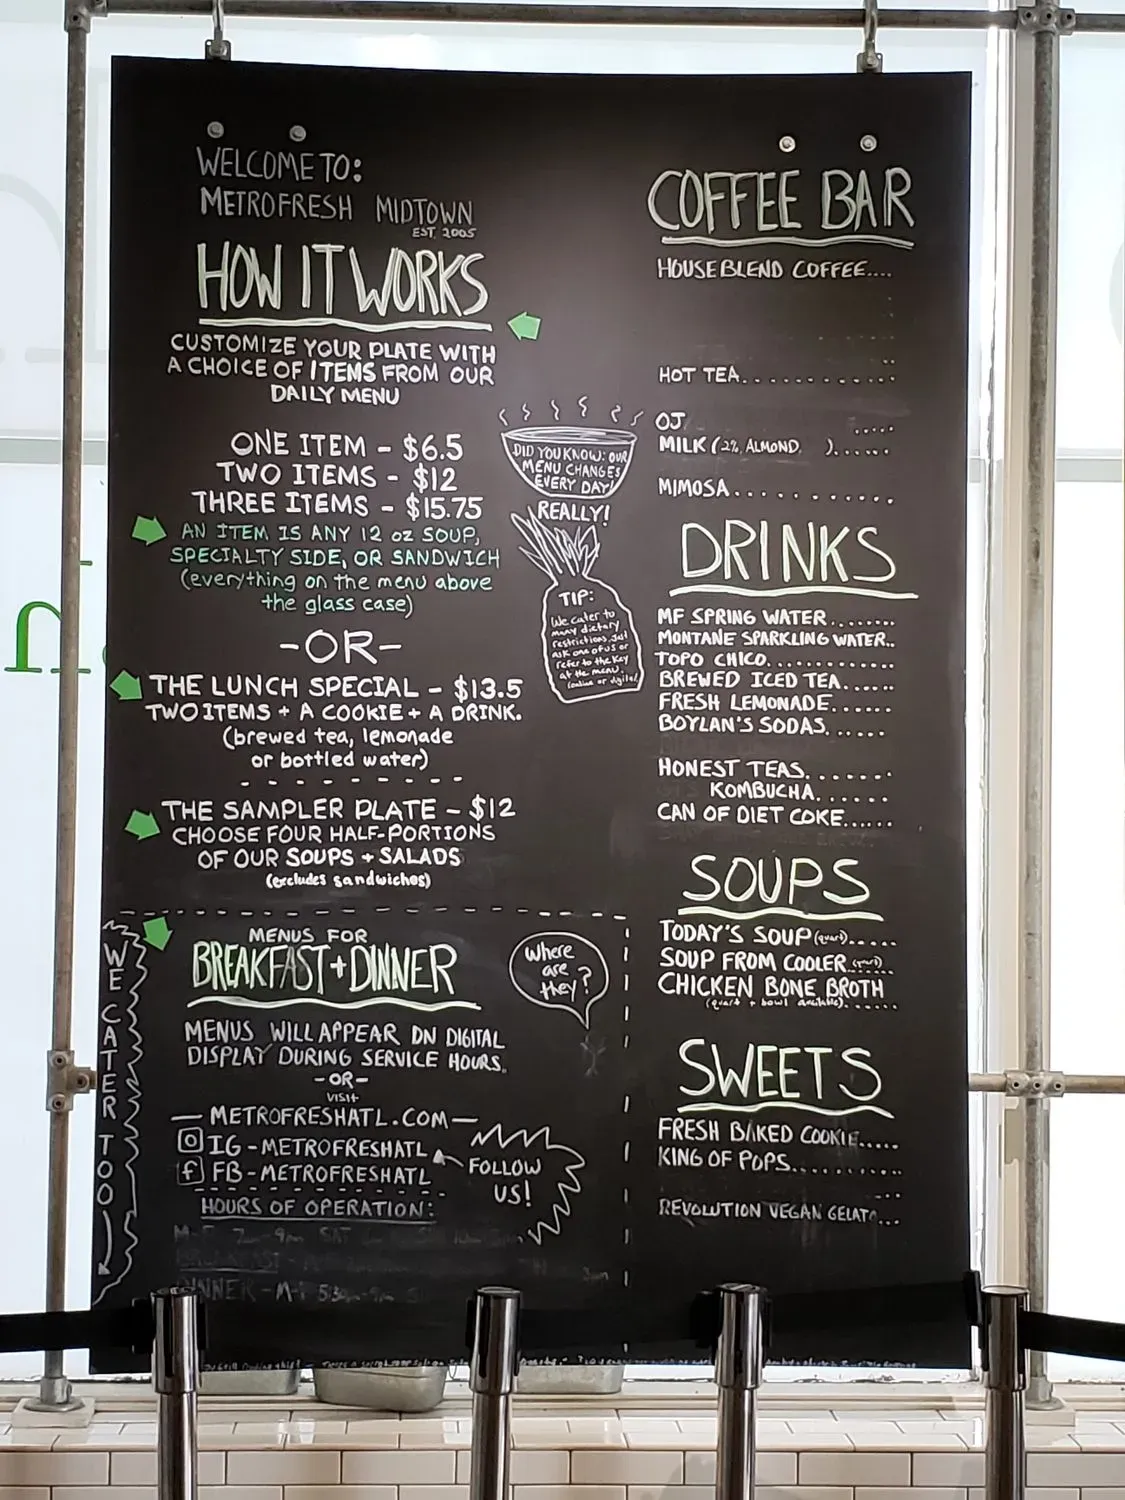 WELCOME TO:
METROFRESH MIDTOWN
EST. 2005
HOW IT WORKS
CUSTOMIZE YOUR PLATE WITH
A CHOICE OF ITEMS FROM OUR
DAILY MENU
ONE ITEM - $6.5
TWO ITEMS - $12
THREE ITEMS - $15.75
AN ITEM IS ANY 12 oz SOUP,
SPECIALTY SIDE, OR SANDWICH
(everything on the menu above
the glass case)
-OR-
THE LUNCH SPECIAL - $13.5
TWO ITEMS + A COOKIE + A DRINK.
(brewed tea, lemonade
or bottled water)
THE SAMPLER PLATE - $12
CHOOSE FOUR HALF-PORTIONS
OF OUR SOUPS + SALADS
(excludes sandwiches)
DID YOU KNOW: OUR
MENU CHANGES
EVERY DAY!
REALLY!
TIP:
We cater to
many dietary
restrictions. Just
ask one of us or
refer to the key
at the menu.
(online or digital)
MENUS FOR
BREAKFAST + DINNER
Where
are
they?
MENUS WILL APPEAR ON DIGITAL
DISPLAY DURING SERVICE HOURS.
-OR-
VISIT
— METROFRESHATL.COM —
IG - METROFRESHATL
FB - METROFRESHATL
FOLLOW
US!
HOURS OF OPERATION:
DINNER - M-F 5:30
WE CATER TOO
COFFEE BAR
HOUSEBLEND COFFEE....
HOT TEA............
OJ .....
MILK (2% ALMOND, )......
MIMOSA............
DRINKS
MF SPRING WATER........
MONTANE SPARKLING WATER..
TOPO CHICO............
BREWED ICED TEA......
FRESH LEMONADE......
BOYLAN'S SODAS......
HONEST TEAS.......
KOMBUCHA......
CAN OF DIET COKE......
SOUPS
TODAY'S SOUP (quart).....
SOUP FROM COOLER (quart)......
CHICKEN BONE BROTH
(quart + bowl available)......
SWEETS
FRESH BAKED COOKIE.....
KING OF POPS..........
REVOLUTION VEGAN GELATO...